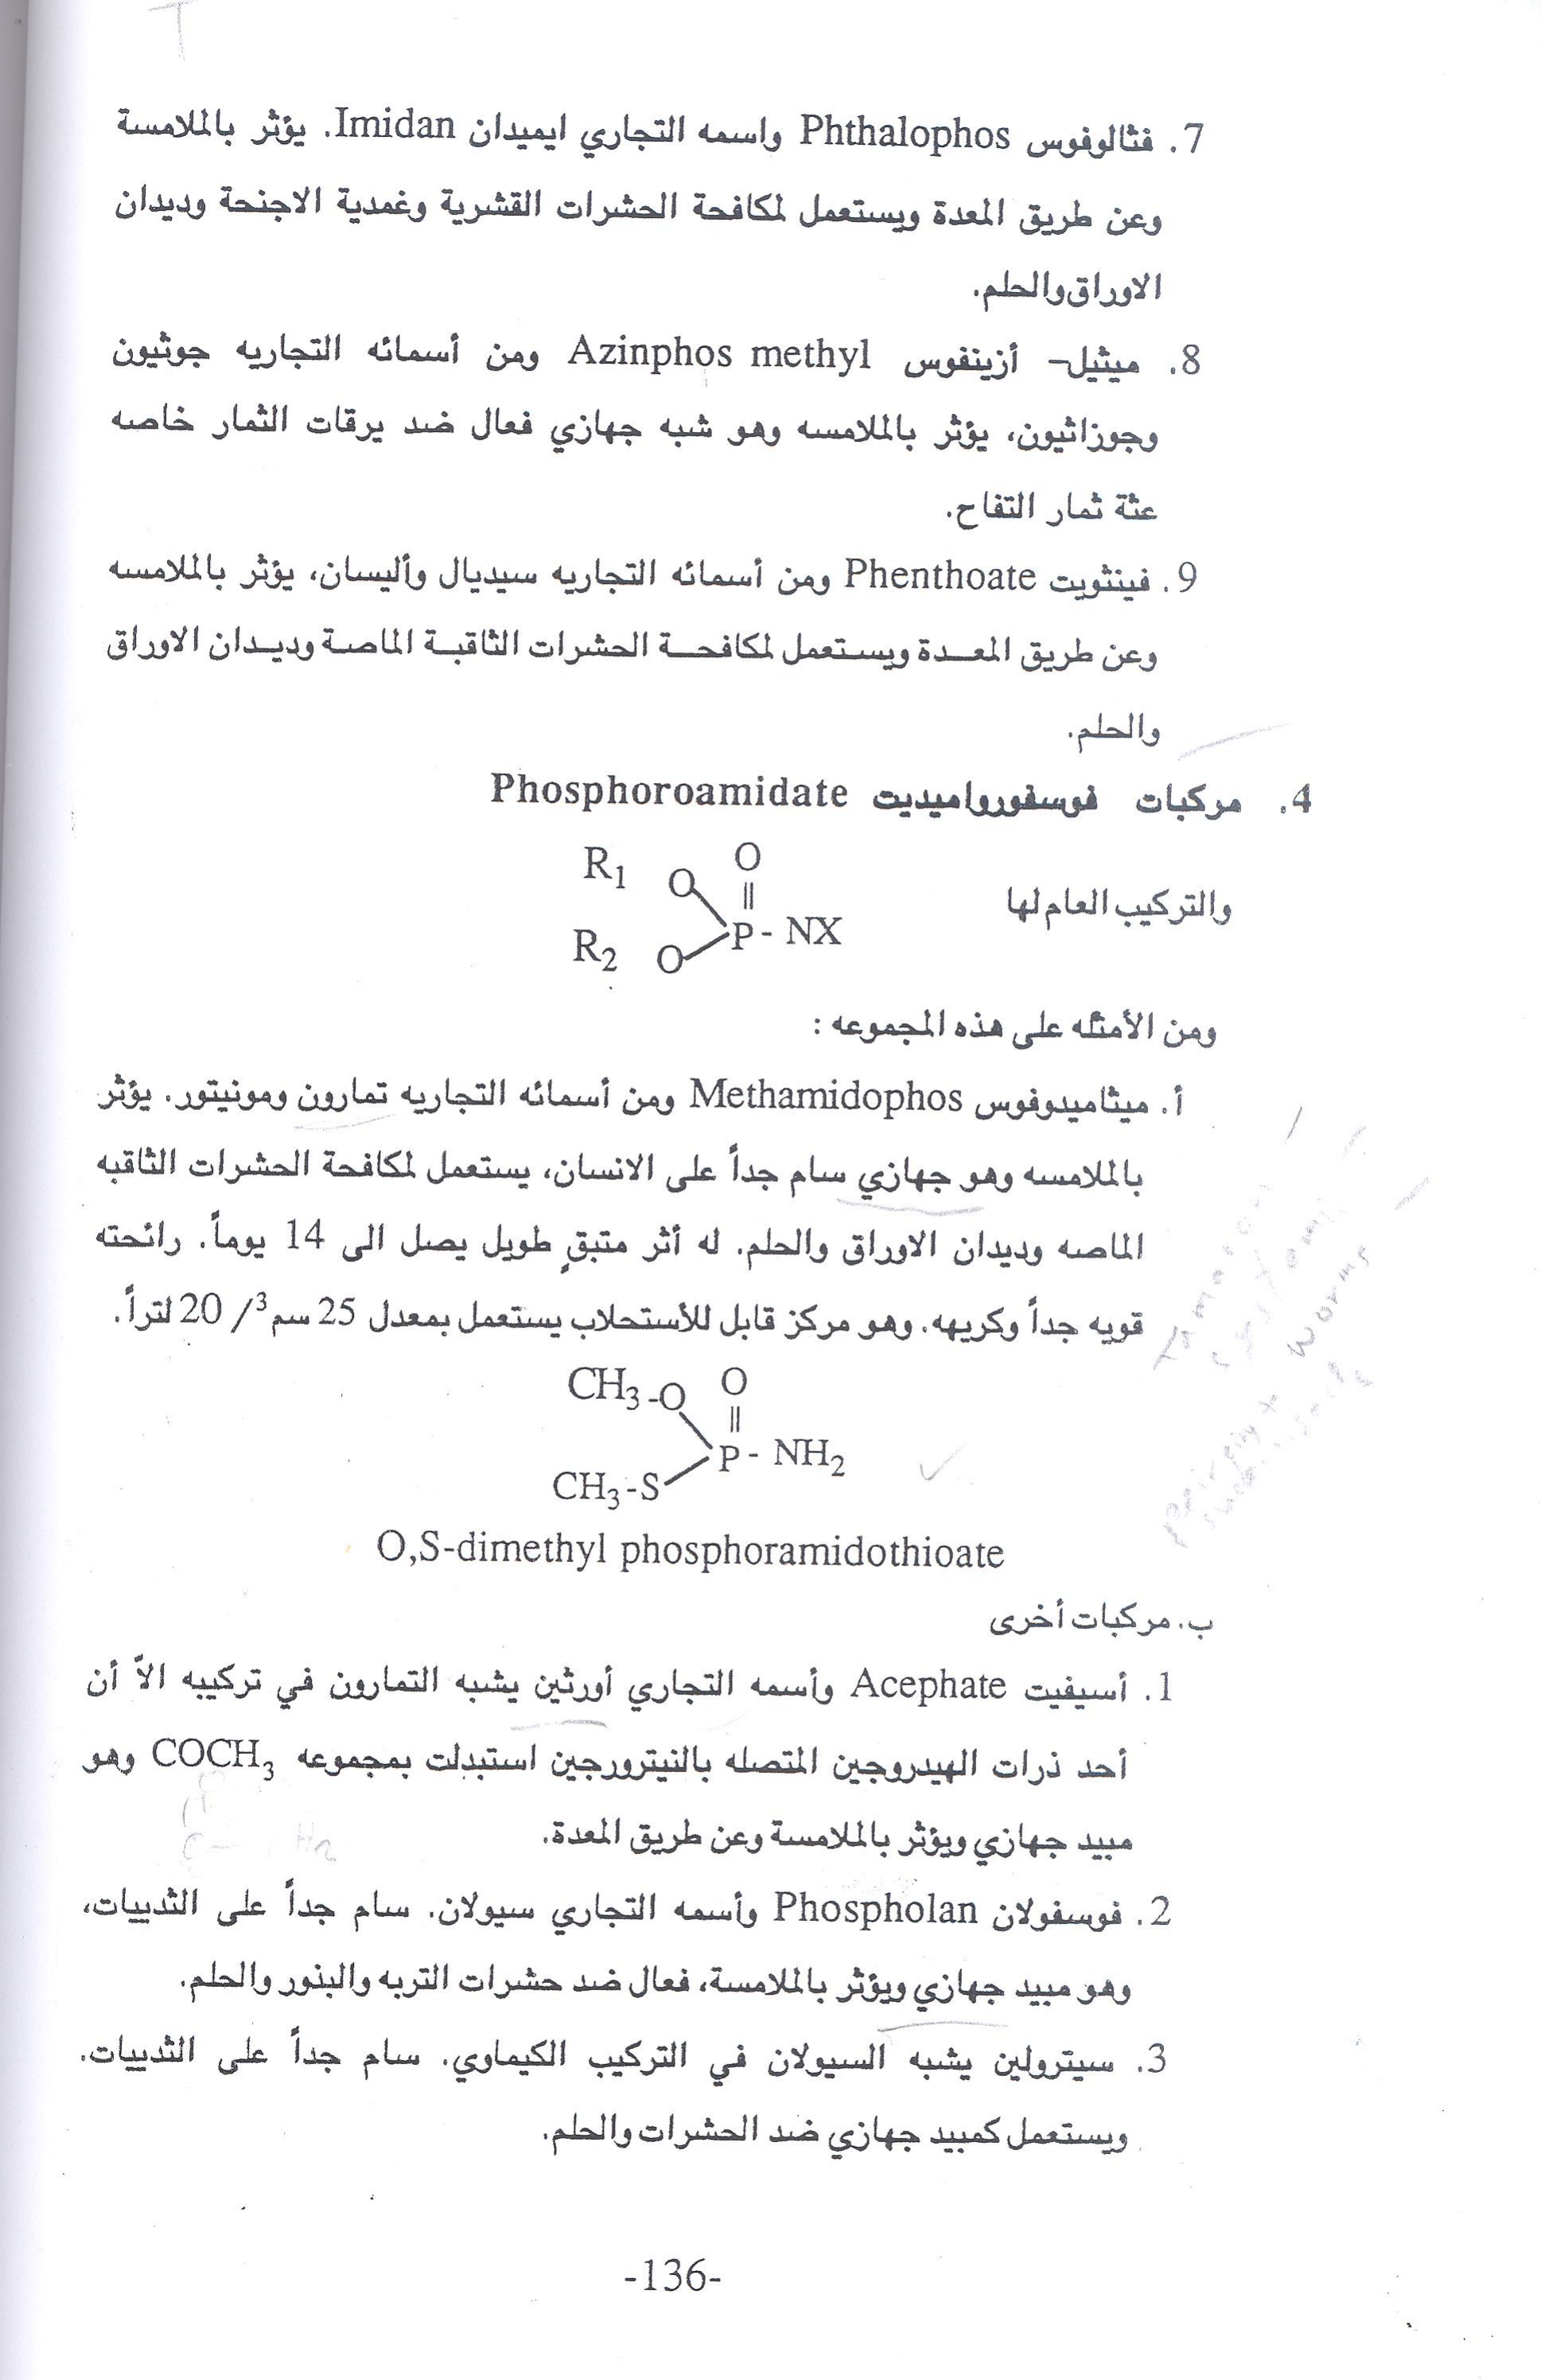 7. فثالوفوس Phthalophos واسمه التجاري ايميدان Imidan. يؤثر بالملامسة
وعن طريق المعدة ويستعمل لمكافحة الحشرات القشرية وغمدية الاجنحة وديدان
الاوراق والحلم.
8. ميثيل- أزينفوس Azinphos methyl ومن أسمائه التجاريه جوثيون
وجوزاثيون، يؤثر بالملامسه وهو شبه جهازي فعال ضد يرقات الثمار خاصه
عثة ثمار التفاح.
9. فينثويت Phenthoate ومن أسمائه التجاريه سيديال وأليسان، يؤثر بالملامسه
وعن طريق المعدة ويستعمل لمكافحة الحشرات الثاقبة الماصة وديدان الاوراق
والحلم.
4. مركبات فوسفورواميديت Phosphoroamidate
والتركيب العام لها
R1 O O
P - NX
R2 O
ومن الأمثله على هذه المجموعه :
أ. ميثاميدوفوس Methamidophos ومن أسمائه التجاريه تمارون ومونيتور. يؤثر
بالملامسه وهو جهازي سام جداً على الانسان، يستعمل لمكافحة الحشرات الثاقبه
الماصه وديدان الاوراق والحلم. له أثر متبقٍ طويل يصل الى 14 يوماً. رائحته
قويه جداً وكريهه. وهو مركز قابل للأستحلاب يستعمل بمعدل 25 سم3/ 20 لتراً.
CH3-O O
P - NH2
CH3-S
O,S-dimethyl phosphoramidothioate
ب. مركبات أخرى
1. أسيفيت Acephate وأسمه التجاري أورثين يشبه التمارون في تركيبه الاّ أن
أحد ذرات الهيدروجين المتصله بالنيترورجين استبدلت بمجموعه COCH3 وهو
مبيد جهازي ويؤثر بالملامسة وعن طريق المعدة.
2. فوسفولان Phospholan وأسمه التجاري سيولان. سام جداً على الثدييات،
وهو مبيد جهازي ويؤثر بالملامسة، فعال ضد حشرات التربه والبنور والحلم.
3. سيترولين يشبه السيولان في التركيب الكيماوي. سام جداً على الثدييات.
ويستعمل كمبيد جهازي ضد الحشرات والحلم.
-136-